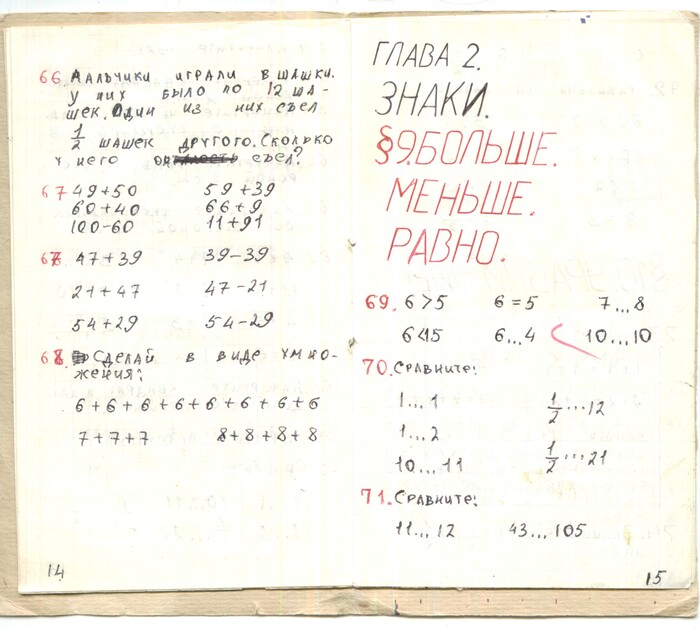 66 МАЛЬЧИКИ ИГРАЛИ В ШАШКИ.
У НИХ БЫЛО ПО 12 ША-
ШЕК. ОДИН ИЗ НИХ СЪЕЛ
1/2 ШАШЕК ДРУГОГО. СКОЛЬКО
У НЕГО СЪЕЛ?
67 49+50 59+39
60+40 66+9
100-60 11+91
67 47+39 39-39
21+47 47-21
54+29 54-29
68. СДЕЛАЙ В ВИДЕ УМНО-
ЖЕНИЯ:
6+6+6+6+6+6+6+6
7+7+7 8+8+8+8
14
ГЛАВА 2.
ЗНАКИ.
§9. БОЛЬШЕ.
МЕНЬШЕ.
РАВНО.
69. 6>5 6=5 7...8
6<15 6...4 10...10
70. СРАВНИТЕ:
1...1 1/2...12
1...2
10...11 1/2...21
71. СРАВНИТЕ:
11...12 43...105
15